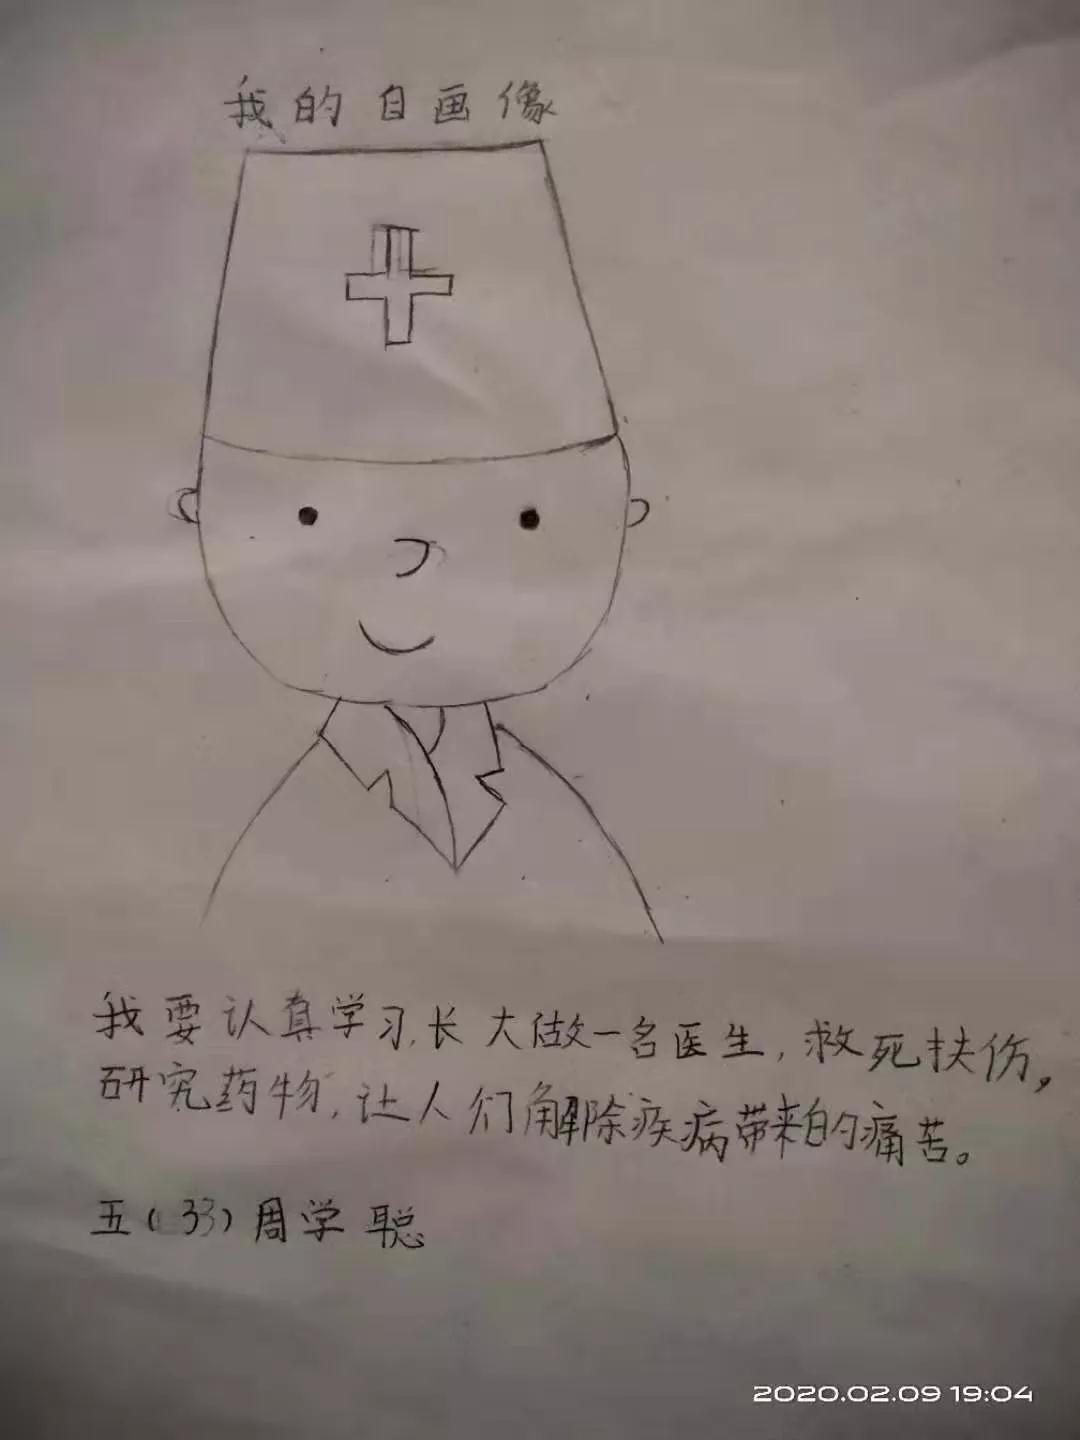 我的自画像
我要认真学习,长大做一名医生,救死扶伤,
研究药物,让人们解除疾病带来的痛苦。
五(33)周学聪
2020.02.09 19:04